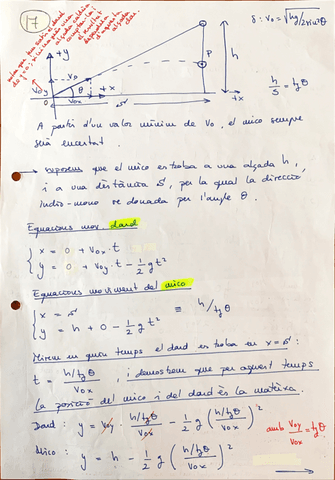 17
+y
v₀
v₀y
θ
v₀x
+x
s
P
h
+x
s: v₀ = √(hg/2sin²θ)
h/s = tgθ
A partir d'un valor mínim de v₀, el mico sempre
serà encertat.
→ suposem que el mico es troba a una alçada h,
i a una distància s, per la qual la direcció
indis-mono ve donada per l'angle θ.
Equacions mov. dard
{ x = 0 + v₀x · t
y = 0 + v₀y · t - 1/2 g t²
Equacions moviment del mico
{ x = s ≡ h/tgθ
y = h + 0 - 1/2 g t²
Mirem en quin temps el dard es troba en x = s:
t = (h/tgθ)/v₀x , i demostrem que per aquest temps
la posició del mico i del dard és la mateixa.
Dard: y = v₀y · (h/tgθ)/v₀x - 1/2 g ((h/tgθ)/v₀x)²
amb v₀y/v₀x = tgθ
Mico: y = h - 1/2 g ((h/tgθ)/v₀x)²